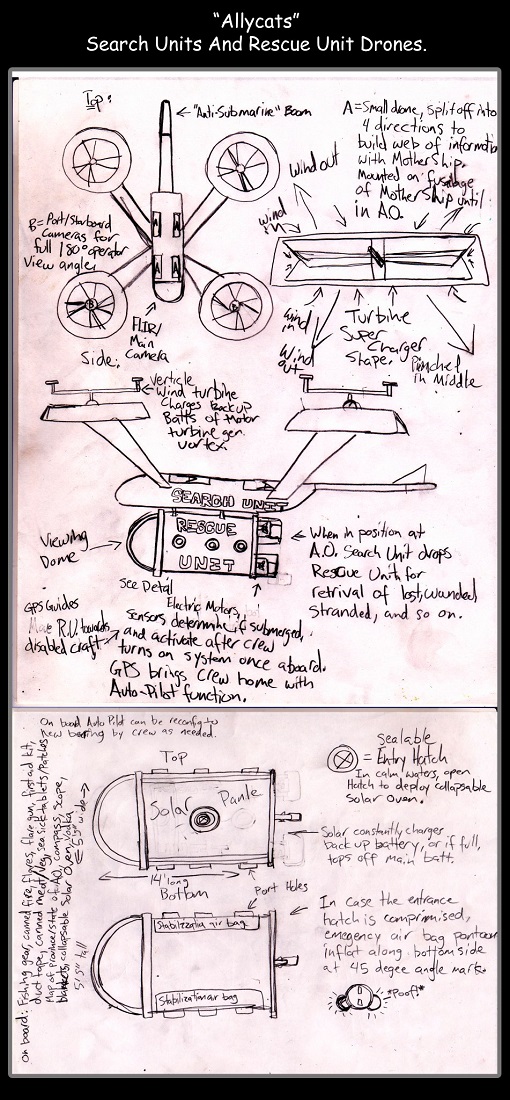 “Allycats”
Search Units And Rescue Unit Drones.
Top:
"Anti-Submarine" Boom
A=Small drone, Split off into
4 directions to
build web of information
with MotherShip.
Mounted on fusalage
of MotherShip until
in A.O.
B=Port/Starboard
Cameras for
full 180° operator
View angle,
A A
A A
B
FLIR/
Main
Camera
Wind out
wind
in
Wind
in
Wind
out
Turbine
Super
Charger
Shape.
Pinched
in Middle
Side:
Verticle
Wind turbine
Charges Backup
Batts of Motor
turbine gen.
vortex
SEARCH UNIT
RESCUE
UNIT
Viewing
Dome
See Detail
When in position at
A.O. Search Unit drops
Rescue Unit for
retrival of lost, wounded
Stranded, and so on.
GPS Guides
R.U. towards
disabled craft
Electric Motors,
sensors determine if submerged,
and activate after crew
turns on system once aboard.
GPS brings Crew home with
Auto-Pilot function.
On board Auto Pilot can be reconfig to
new bearing by crew as needed.
On board: Fishing gear, canned fire, flares, flare gun, first aid kit,
duct tape, canned meat/Veg, sea sick tablets/Patches
Map of Province/State of AO, compass, scope,
blankets, collapsable Solar Oven, Vodka
5'3" tall
Top
Solar Panle
14' long
Bottom
Port Holes
Stabilization air bag
Stabilization air bag
Sealable
= Entry Hatch
In calm waters, open
Hatch to deploy collapsable
Solar Oven.
Solar constantly charger
back up battery, or if full,
tops off main batt.
In case the entrance
hatch is comprimised,
emegency air bag pontoon
inflat along bottom side
at 45 degee angle mark.
*Poof!*